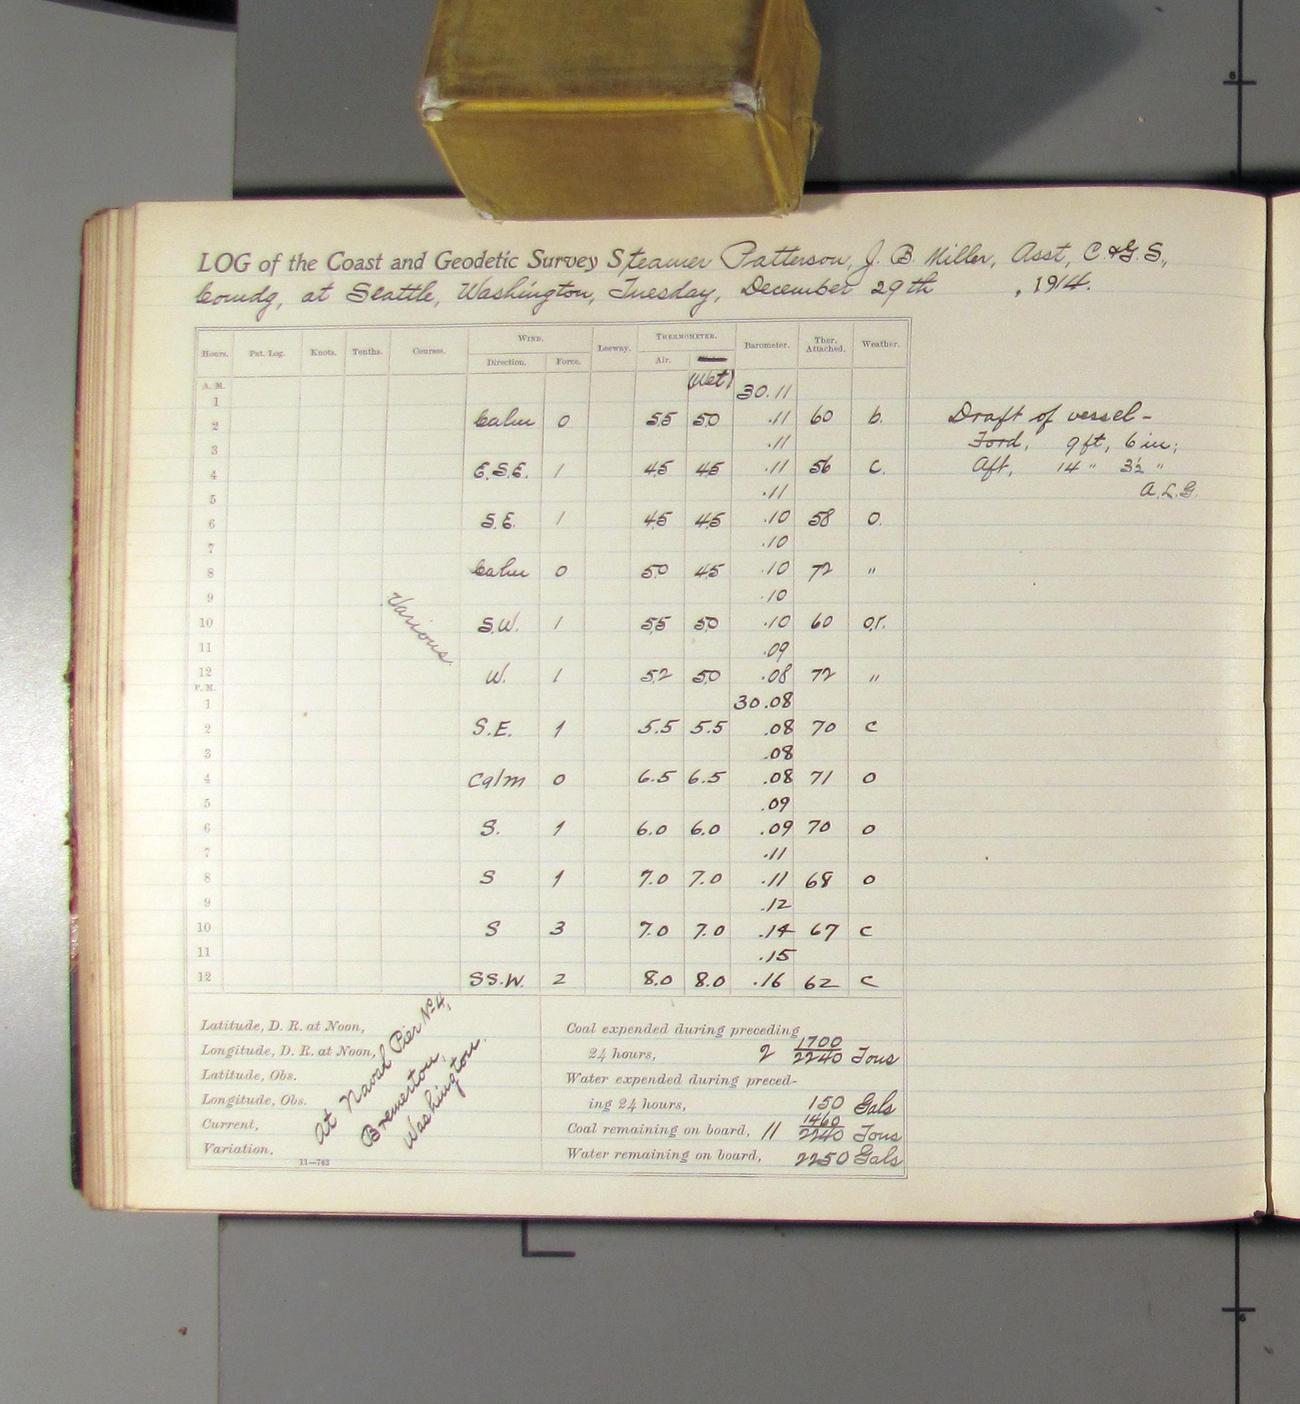 LOG of the Coast and Geodetic Survey Steamer Patterson, J. B. Miller, Asst, C. & G. S.,
Comdg, at Seattle, Washington, Tuesday, December 29th , 1914.
Hours. Pat. Log. Knots. Tenths. Courses. WIND. Leeway. THERMOMETER. Barometer. Ther. Attached. Weather.
Direction. Force. Air. (Wet)
A. M.
1 30.11
2 Calm 0 55 50 .11 60 b.
3 .11
4 E.S.E. 1 45 45 .11 56 C.
5 .11
6 S.E. 1 45 45 .10 58 O.
7 .10
8 Calm 0 50 45 .10 72 "
9 .10
10 S.W. 1 55 50 .10 60 o.r.
11 .09
12 W. 1 52 50 .08 72 "
Various.
P. M.
1 30.08
2 S.E. 1 5.5 5.5 .08 70 c
3 .08
4 Calm 0 6.5 6.5 .08 71 o
5 .09
6 S. 1 6.0 6.0 .09 70 o
7 .11
8 S 1 7.0 7.0 .11 68 o
9 .12
10 S 3 7.0 7.0 .14 67 c
11 .15
12 SS.W. 2 8.0 8.0 .16 62 c
Draft of vessel -
Ford, 9 ft, 6 in;
Aft, 14 " 3½ "
A.L.G.
Latitude, D. R. at Noon,
Longitude, D. R. at Noon,
Latitude, Obs.
Longitude, Obs.
Current,
Variation,
11—762
At Naval Pier No 4,
Bremerton,
Washington.
Coal expended during preceding
24 hours, 2 1700/2240 Tons
Water expended during preced-
ing 24 hours, 150 Gals
Coal remaining on board, 11 1460/2240 Tons
Water remaining on board, 2250 Gals